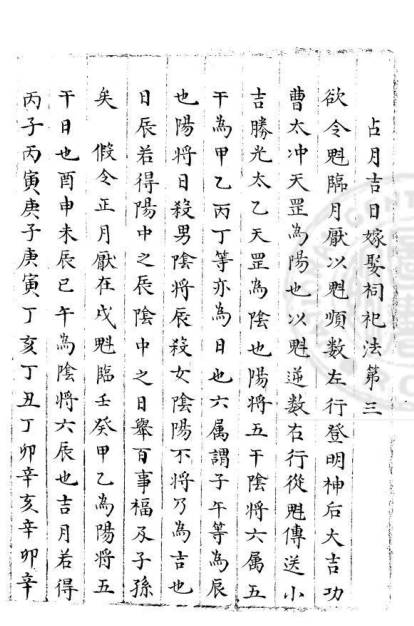 占月吉日嫁娶祠祀法第三
欲令魁臨月厭以魁順數左行登明神后大吉功
曹太冲天罡為陽也以魁逆數右行從魁傳送小
吉勝光太乙天罡為陰也陽將五干陰將六属五
干為甲乙丙丁等亦為日也六属謂子午等為辰
也陽將日殺男陰將辰殺女陰陽不將乃為吉也
日辰若得陽中之辰陰中之日舉百事福及子孫
矣　假令正月厭在戌魁臨壬癸甲乙為陽將五
干日也酉申未辰巳午為陰將六辰也吉月若得
丙子丙寅庚子庚寅丁亥丁丑丁卯辛亥辛卯辛